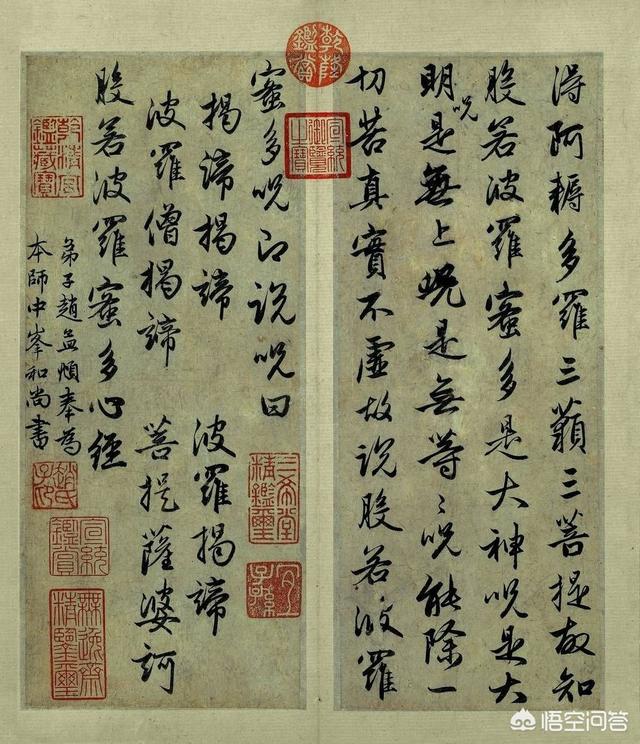 得阿耨多羅三藐三菩提故知
般若波羅蜜多是大神呪是大
明呪是無上呪是无等〻呪能除一
切苦真實不虛故說般若波羅
蜜多呪即說呪曰
揭諦揭諦 波羅揭諦
波羅僧揭諦 菩提薩婆訶
般若波羅蜜多心經
弟子趙孟頫奉為
本師中峯和尚書
乾隆鑑賞
宣統御覽之寶
乾清宮鑑藏寶
三希堂精鑑璽
宜子孫
趙氏子昂
宣統鑑賞
無逸齋精鑑璽
悟空问答